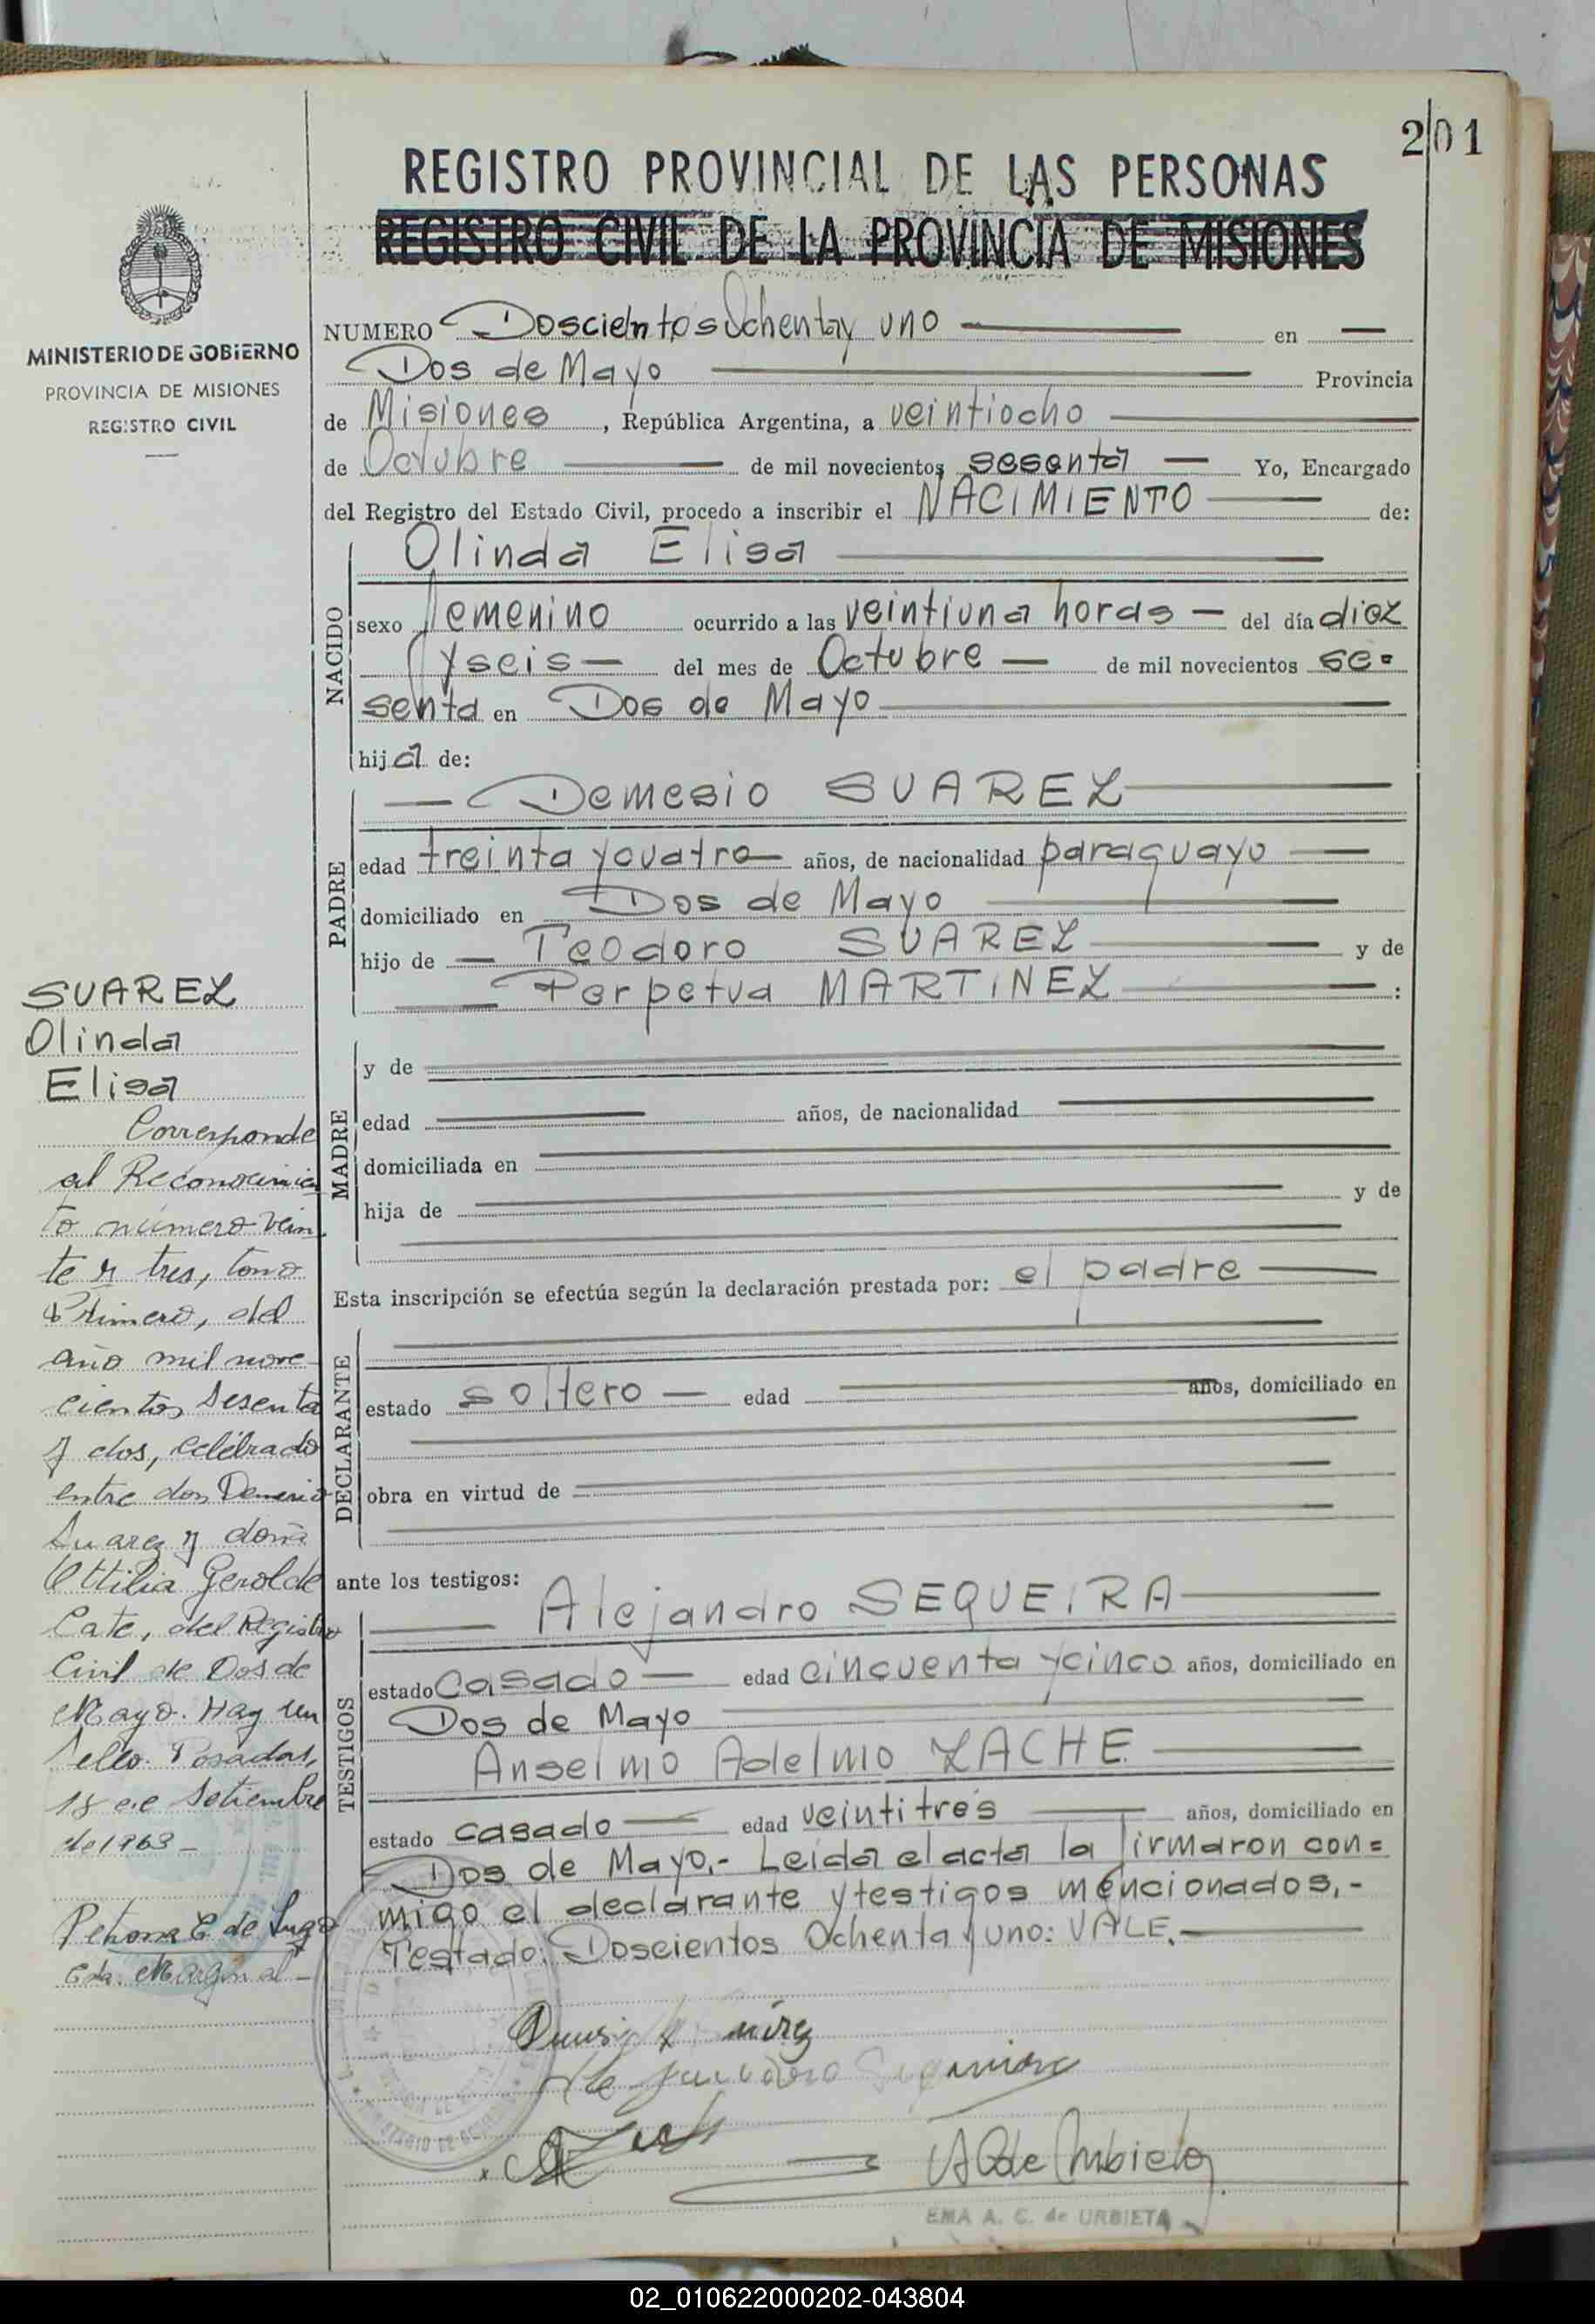 201
REGISTRO PROVINCIAL DE LAS PERSONAS
REGISTRO CIVIL DE LA PROVINCIA DE MISIONES
MINISTERIO DE GOBIERNO
PROVINCIA DE MISIONES
REGISTRO CIVIL
NUMERO Doscientos Ochenta y uno en
Dos de Mayo Provincia
de Misiones, República Argentina, a veintiocho
de Octubre de mil novecientos sesenta Yo, Encargado
del Registro del Estado Civil, procedo a inscribir el NACIMIENTO de:
Olinda Elisa
NACIDO
sexo femenino ocurrido a las veintiuna horas del día diez
y seis del mes de Octubre de mil novecientos se=
senta en Dos de Mayo
hija de:
Demesio SUAREZ
PADRE
edad treinta y cuatro años, de nacionalidad paraguayo
domiciliado en Dos de Mayo
hijo de Teodoro SUAREZ y de
Perpetua MARTINEZ :
MADRE
y de
edad años, de nacionalidad
domiciliada en
hija de y de
Esta inscripción se efectúa según la declaración prestada por: el padre
DECLARANTE
estado soltero edad años, domiciliado en
obra en virtud de
ante los testigos:
TESTIGOS
Alejandro SEQUEIRA
estado Casado edad cincuenta y cinco años, domiciliado en
Dos de Mayo
Anselmo Adelmo ZACHE
estado casado edad veintitrés años, domiciliado en
Dos de Mayo.- Leida el acta la firmaron con=
migo el declarante y testigos mencionados.-
Testado: Doscientos Ochenta y uno: VALE.
EMA A. C. de URBIETA
SUAREZ
Olinda
Elisa
Corresponde
al Reconocimien
to número vein
te y tres, tomo
Primero, del
año mil nove-
cientos sesenta
y dos, celebrado
entre don Demesio
Suarez y doña
Ottilia Gerolde
Cate, del Registro
Civil de Dos de
Mayo. Hay un
sello. Posadas,
18 de Setiembre
de 1963 -
Petrona E. de Lugo
Eda. Marginal -
02_010622000202-043804